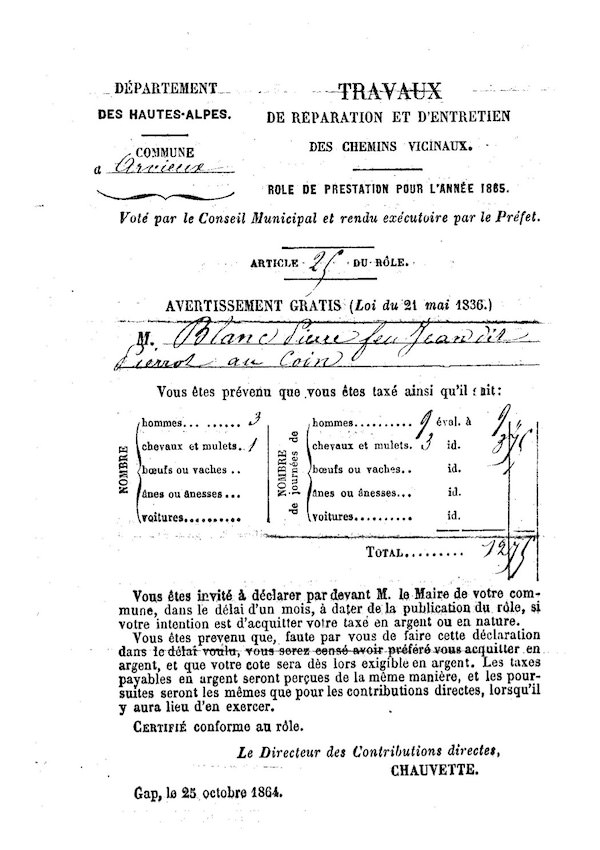 DÉPARTEMENT
DES HAUTES-ALPES.
COMMUNE
a Arvieux
TRAVAUX
DE RÉPARATION ET D'ENTRETIEN
DES CHEMINS VICINAUX.
ROLE DE PRESTATION POUR L'ANNÉE 1865.
Voté par le Conseil Municipal et rendu exécutoire par le Préfet.
ARTICLE 25 DU RÔLE.
AVERTISSEMENT GRATIS (Loi du 21 mai 1836.)
M. Blanc Pierre feu Jean dit
Pierrot au Coin
Vous êtes prévenu que vous êtes taxé ainsi qu'il suit:
NOMBRE
hommes... ...... 3
chevaux et mulets. 1
bœufs ou vaches ..
ânes ou ânesses...
voitures..........
NOMBRE de journées de
hommes.......... 9 éval. à 9 "
chevaux et mulets. 3 id. 3 75
bœufs ou vaches.. id.
ânes ou ânesses... id.
voitures.......... id.
TOTAL......... 12 75
Vous êtes invité à déclarer par devant M. le Maire de votre com-
mune, dans le délai d'un mois, à dater de la publication du rôle, si
votre intention est d'acquitter votre taxe en argent ou en nature.
Vous êtes prevenu que, faute par vous de faire cette déclaration
dans le délai voulu, vous serez censé avoir préféré vous acquitter en
argent, et que votre cote sera dès lors exigible en argent. Les taxes
payables en argent seront perçues de la même manière, et les pour-
suites seront les mêmes que pour les contributions directes, lorsqu'il
y aura lieu d'en exercer.
CERTIFIÉ conforme au rôle.
Le Directeur des Contributions directes,
CHAUVETTE.
Gap, le 25 octobre 1864.